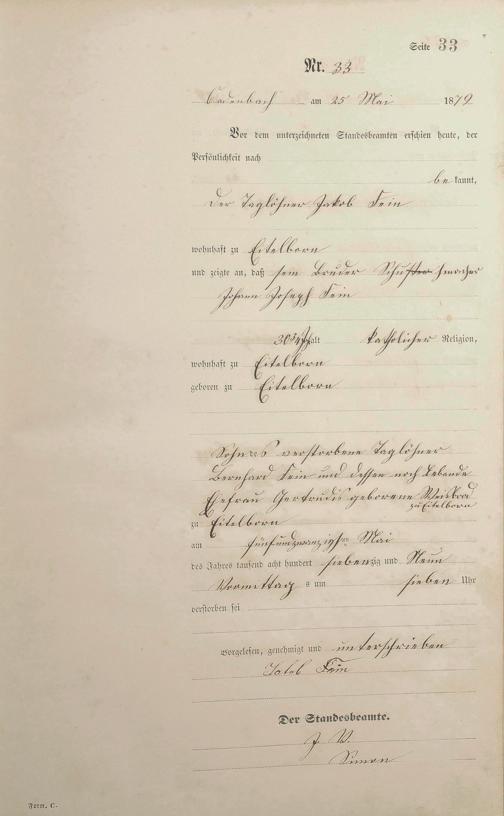 Seite 33
Nr. 33
Cadenbach am 25 Mai 1879
Vor dem unterzeichneten Standesbeamten erschien heute, der
Persönlichkeit nach
be kannt,
der Taglöhner Jakob Fein
wohnhaft zu Eitelborn
und zeigte an, daß sein Bruder Schuster hmacher
Johann Joseph Fein
30 3/4 J alt katholischer Religion,
wohnhaft zu Eitelborn
geboren zu Eitelborn
Sohn des verstorbene Taglöhner
Bernhard Fein und dessen noch lebende
Ehefrau Gertrudis geborene
zu Eitelborn
zu Eitelborn
am fünfundzwanzigsten Mai
des Jahres tausend acht hundert siebenzig und Neun
Vormittags um sieben Uhr
verstorben sei
Vorgelesen, genehmigt und unterschrieben
Jakob Fein
Der Standesbeamte.
J. V.
Simon
Form. C.